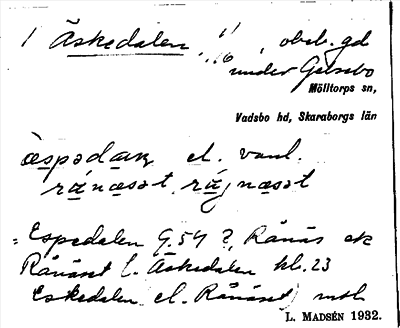 1 Äskedalen, 1/16, obeb. gd
under Gilsebo
Mölltorps sn,
Vadsbo hd, Skaraborgs län
æspədaɳ el. vanl.
ránæsət, rájnæsət
= Espedalen G.54 ?, Rånäs ek
Rånäset l. Äskedalen hl. 23
Eskedalen el. Rånäset) mtl
L. MADSÉN 1932.